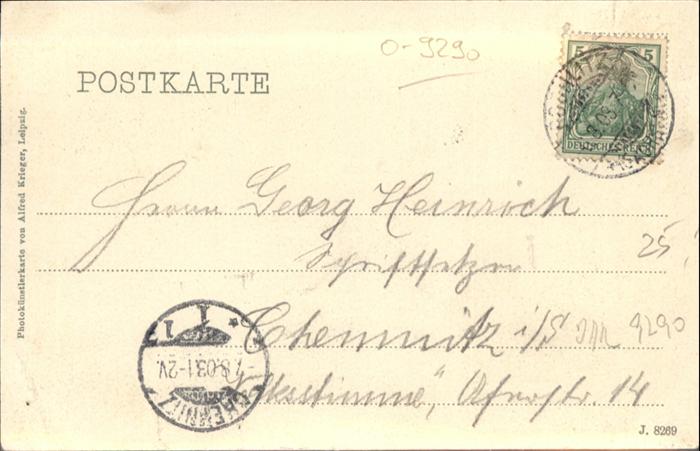 0-9290
POSTKARTE
5 5
DEUTSCHES REICH
Photokünstlerkarte von Alfred Krieger, Leipzig.
Herrn Georg Heinrich
25
Schriftsetzer
Chemnitz i/S
9290
"Volksstimme", Aferstr. 14
1
CHEMNITZ
8.03.1-2V.
J. 8269